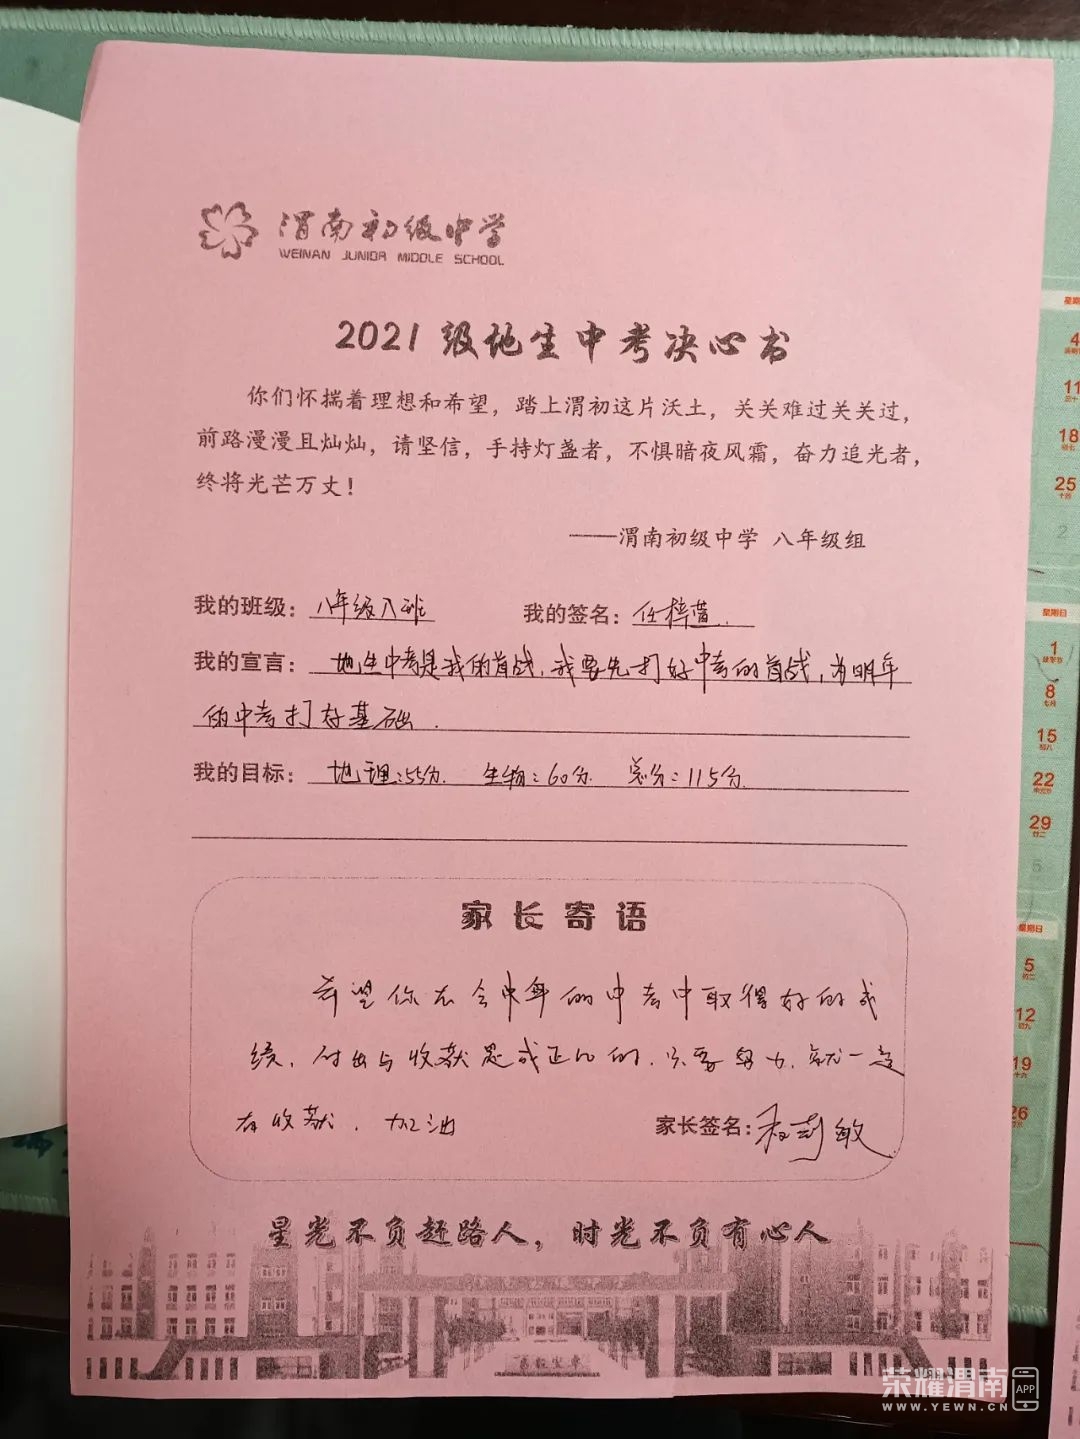 渭南初级中学
WEINAN JUNIOR MIDDLE SCHOOL
2021级地生中考决心书
你们怀揣着理想和希望，踏上渭初这片沃土，关关难过关关过，
前路漫漫且灿灿，请坚信，手持灯盏者，不惧暗夜风霜，奋力追光者，
终将光芒万丈！
——渭南初级中学 八年级组
我的班级：八年级八班 我的签名：任梓萱.
我的宣言：地生中考是我的首战，我要先打好中考的首战，为明年
的中考打好基础.
我的目标：地理：55分. 生物：60分. 总分：115分.
家长寄语
希望你在今年的中考中取得好的成
绩，付出与收获是成正比的，只要努力，就一定
有收获，加油
家长签名：
星光不负赶路人，时光不负有心人
星期日
4
11
18
25
星期日
1
8
15
22
29
5
星期日
5
12
19
26
荣耀渭南 APP
WWW.YEWN.CN